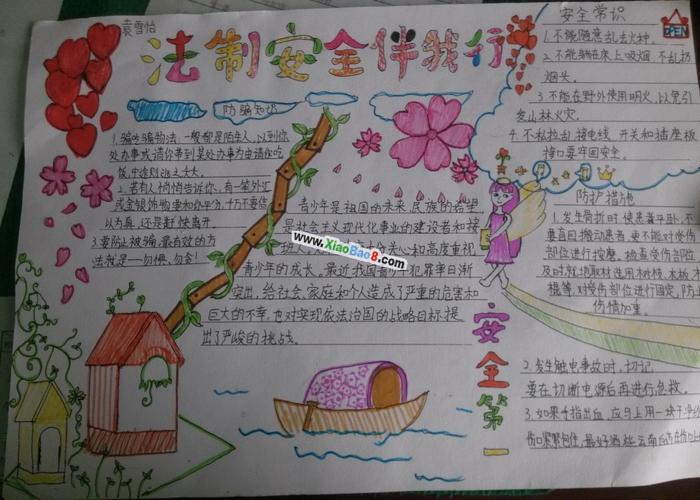 袁雪怡
法制安全伴我行
防骗知识
1.骗吃骗物法.一般都是陌生人,以到你
处办事或请你带到某处办事为由请你吃
饭,中途则溜之大大。
2.若有人悄悄告诉你,有一笔外汇
或金银饰物要和你平分,千万不要信
以为真,还是赶快离开
3.要防止被骗,最有效的方
法就是一勿惧、勿贪!
青少年是祖国的未来,民族的希望
是社会主义现代化事业的建设者和接
班人,
心和高度重视
青少年的成长。最近我国青少年犯罪率日渐
突出,给社会、家庭和个人造成了严重的危害和
巨大的不幸,也对实现依法治国的战略目标,提
出了严峻的挑战。
www.XiaoBao8.com
安全常识
OPEN
1.不能随意乱丢火种。
2.不能躺在床上吸烟,不乱扔
烟头。
3.不能在野外使用明火,以免引
发山林火灾。
4.不私拉乱接电线,开关和插座板
接口要牢固安全。
防护措施
1.发生骨折时,使患者平卧,不
要盲目搬动患者,更不能对受伤
部位进行按摩,检查受伤部位
及时就地取材选用木板枝、木板
棍等,对受伤部位进行固定,防止
伤情加重。
2.发生触电事故时,切记
要在切断电源后再进行急救。
3.如果手指出血,应马上用一块干净
伤口紧紧包住,最好洒些云南白药在伤口上
安全第一